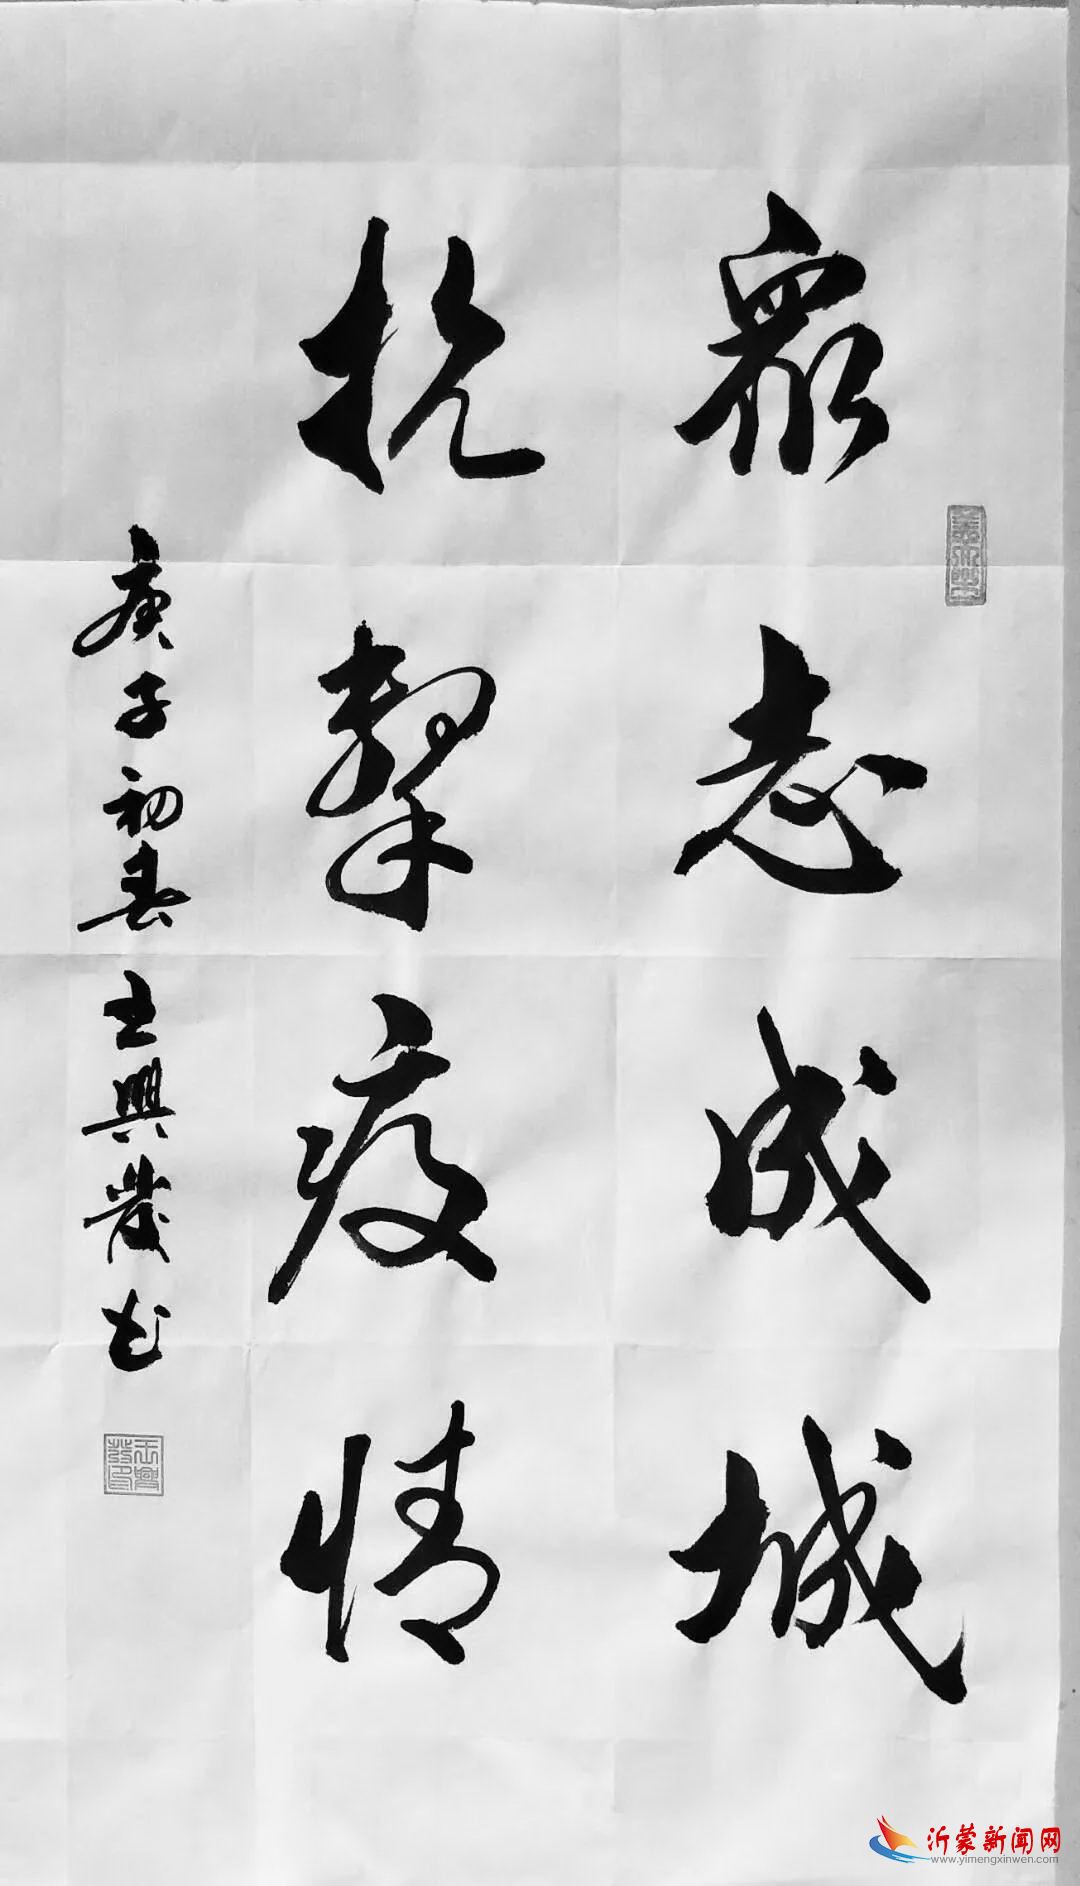 眾志成城
抗擊疫情
庚子初春 王興發书
王興發印
沂蒙新闻网
www.yimengxinwen.com